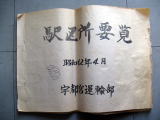 駅区所要覧
昭和12年4月
宇都宮運輸部